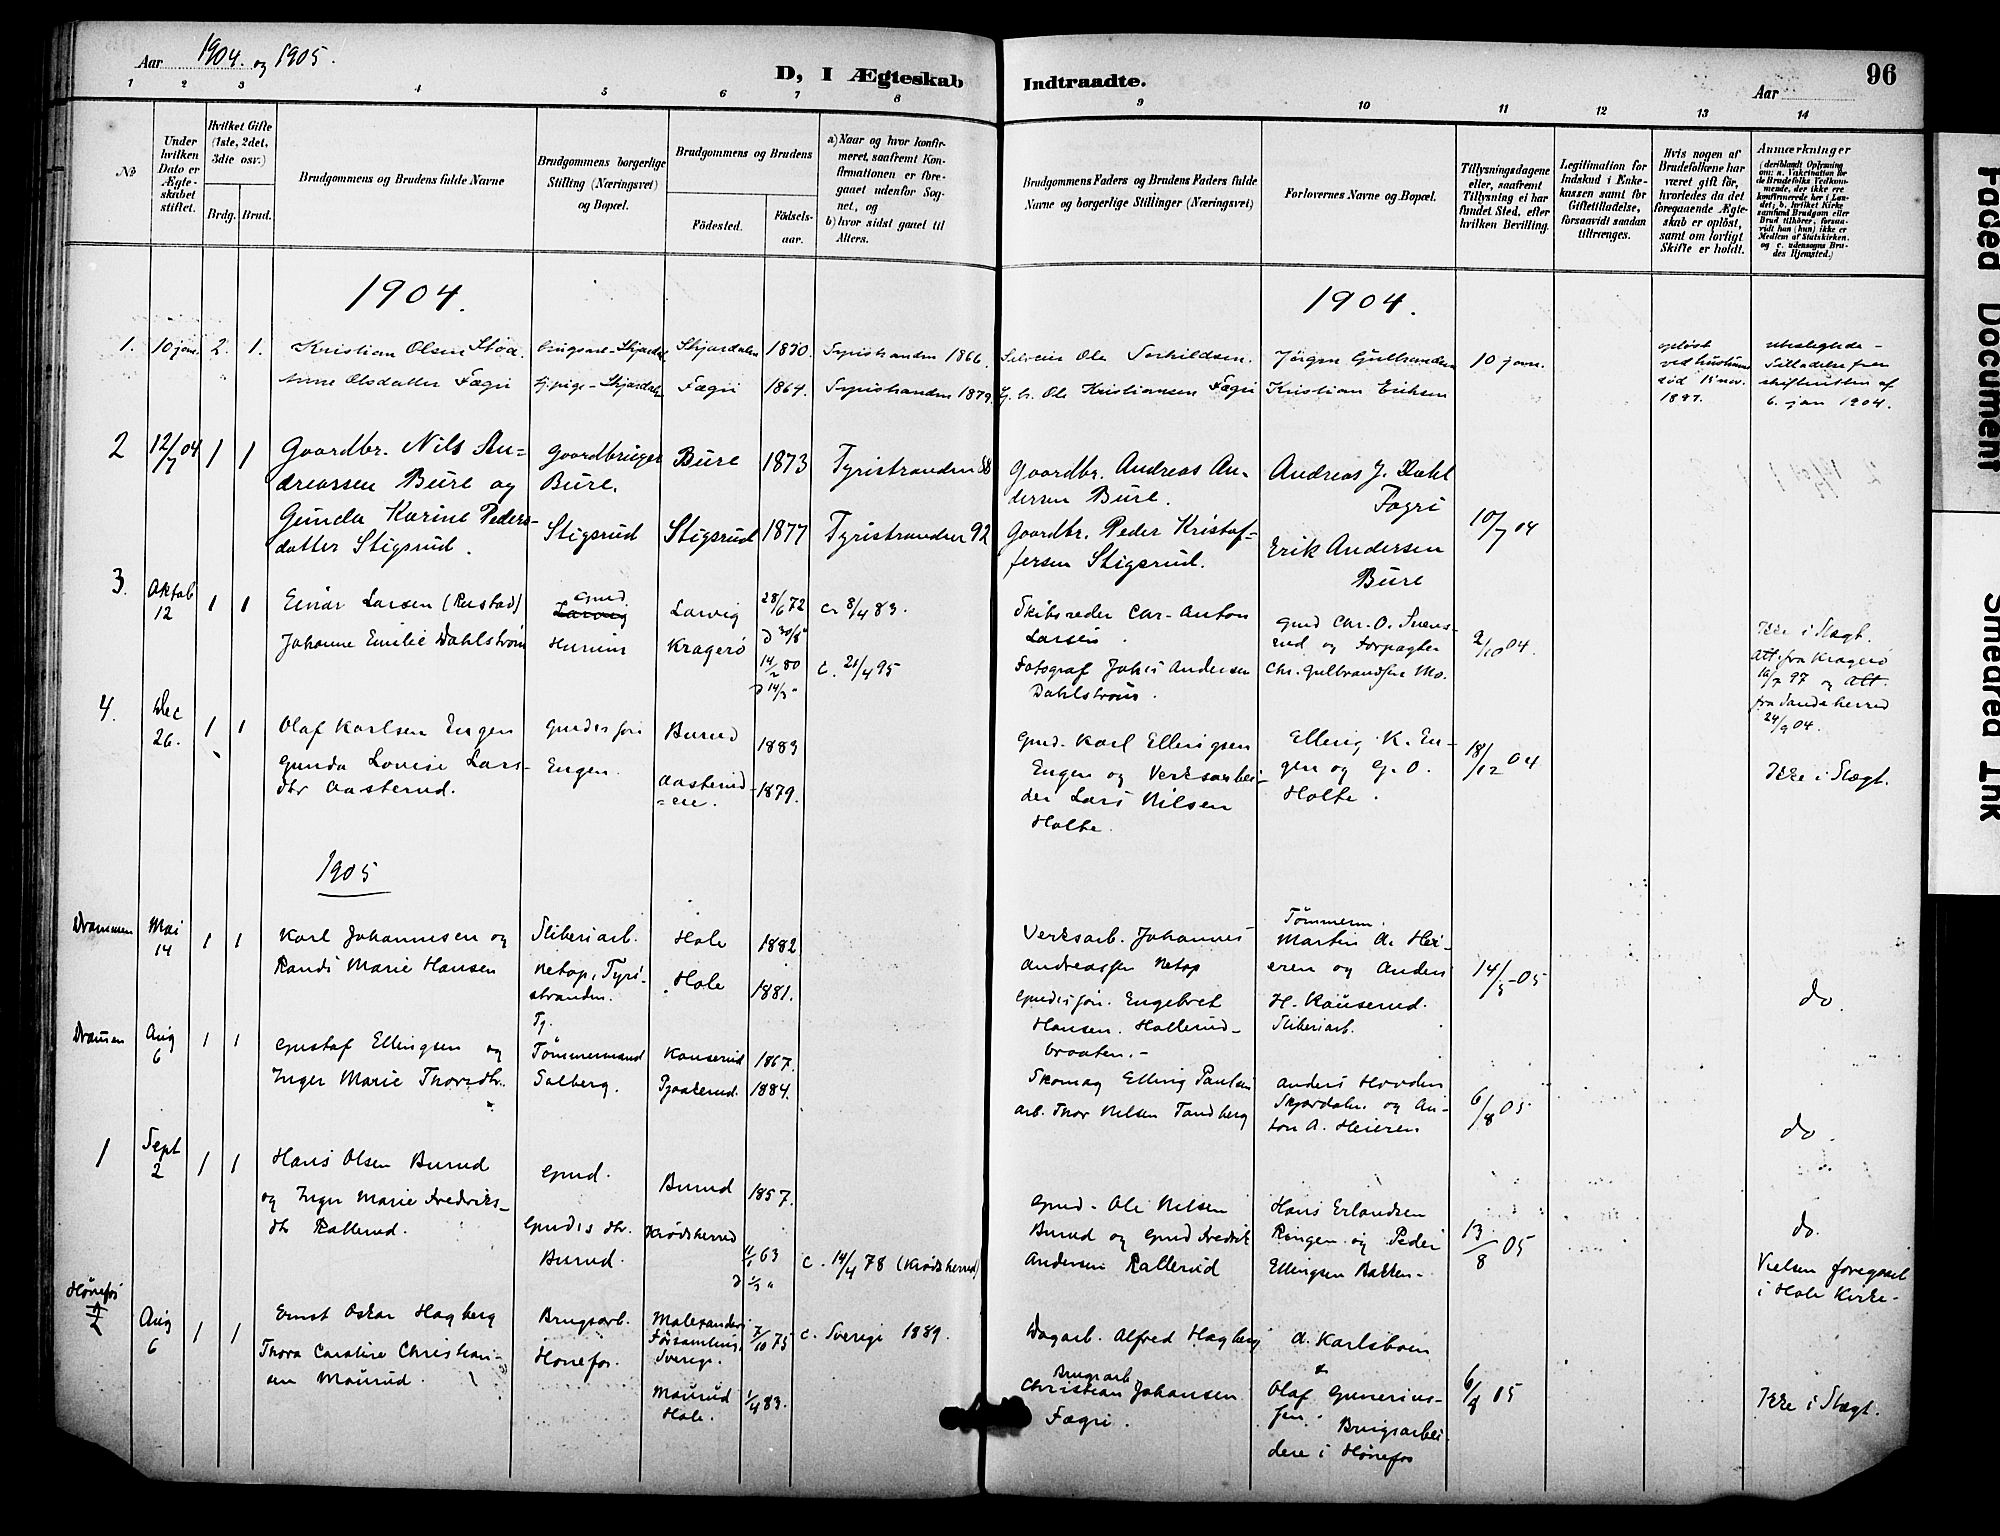 Aar 1904. og 1905.
D, I Ægteskab Indtraadte.
Aar
96
1 2 3 4 5 6 7 8 9 10 11 12 13 14
No
Under hvilken Dato er Ægteskabet stiftet.
Hvilket Gifte (1ste, 2det, 3die osv.)
Brdg. Brud.
Brudgommens og Brudens fulde Navne
Brudgommens borgerlige Stilling (Næringsvei) og Bopæl.
Brudgommens og Brudens
Födested.
Födsels-aar.
a) Naar og hvor konfirmeret, saafremt Konfirmationen er foregaaet udenfor Sognet, og
b) hvor sidst gaaet til Alters.
Brudgommens Faders og Brudens Faders fulde Navne og borgerlige Stillinger (Næringsvei)
Forlovernes Navne og Bopæl.
Tillysningsdagene eller, saafremt Tillysning ei har fundet Sted, efter hvilken Bevilling.
Legitimation for Indskud i Enkekassen samt for Giftetilladelse, forsaavidt saadan tiltrænges.
Hvis nogen af Brudefolkene har været gift för, hvorledes da det foregaaende Ægteskab er oplöst, samt om lovligt Skifte er holdt.
Anmærkninger
(deriblandt Oplysning om: a. Vakcination for de Brudefolks Vedkommende, der ikke ere konfirmerede her i Landet; b. hvilket Kirkesamfund Brudgom eller Brud tilhörer, forsaavidt han (hun) ikke er Medlem af Statskirken, og c. udensogns Brudes Hjemsted.)
1904.
1904.
1. 10 jan. 2. 1. Kristian Olsen Stoa Skjærdalen 1850 Tyristranden 1866. Ole Torhildsen. Jörgen Gulbrandsen 10 jan.
Anne Olsdatter Fægri Fægri 1864. Tyristranden 1879. Ole Kristiansen Fægri Kristian Eriksen
6. jan 1904.
2 12/7 04 1 1 Gaardbr. Nils Andreassen Bure og Gaardbruger Bure. Bure 1873 Tyristranden 88 Gaardbr. Andreas Andersen Bure. Andreas J. Dahl Fagri
Gunda Karine Pedersdatter Stigsrud. Stigsrud Stigsrud 1877 Tyristranden 92 Gaardbr. Peder Kristoffersen Stigsrud. Erik Andersen Bure 10/7 04
3. Oktob 12 1 1 Einar Larsen (Rustad) Gmd. Larvig 28/6 72 c. 8/4 83. Skibsreder Chr. Anton Larsen. 2/10 04.
Johanne Emilie Dahlström Hurum Kragerö 14/2 80 c. 21/4 95 Fotograf Johs Andersen Dahlström. Ikke i Slægt. Att. fra Kragerö og fra Sandeherred 24/9 04.
4. Dec 26. 1 1 Olaf Karlsen Engen Burud 1883 Gmd. Karl Ellingsen Engen og Verksarbeider Lars Nilsen Holte. Elling K. Engen og G. O. Holte. 18/12 04 Ikke i Slægt.
Gunda Lovise Larsdtr Aasterud. Engen. 1879.
1905
Drammen Mai 14 1 1 Karl Johannesen og Sliberiarb. Hole 1882 Verksarb. Johannes Andreassen Netop Tömmerm. Martin A. Heieren og Anders H. Kauserud. Sliberiarb. 14/5-05 do
Randi Marie Hansen Netop, Tyristranden. Hole 1881. Engebret Hansen. Hollerudbraaten.-
Dramen Aug 6 1 1 Gustaf Ellingsen og Ty. Tömmermand Kauserud 1867. Skomag Elling Paulsen Anders Hovden Skjærdalen og Anton A. Heieren 6/8 05 do.
Inger Marie Thorsdtr. Solberg. 1884. arb. Thor Nilsen Tandberg
1 Sept 2 1 1 Hans Olsen Burud Gmd. Burud 1857. Gmd. Ole Nilsen Burud og Gmd Fredrik Andersen Rallerud Hans Erlandsen Ringen og Peder Ellingsen Bakken- 13/8 05 do.
og Inger Marie Fredriksdtr Rallerud. Gmdes dtr. Burud. Krödsherred 63 c. 14/4 78 (Krödsherred) Vielsen foregaaet i Hole Kirke-
Hönefos 2 Aug 6 1 1 Ernst Oskar Hagberg Brugsarb. Hönefos. Sverige. 7/10 75 c. Sverige 1889. Dagarb. Alfred Hagberg A. Karlsboen & Olaf Gunerius- Brugsarbeidere i Hönefos
Thora Caroline Christiansen Maurud. Maurud Hole. 1/4 83. Brugsarb Christian Johansen Fægri. Ikke i Slægt.
Faded Document
Smeared Ink